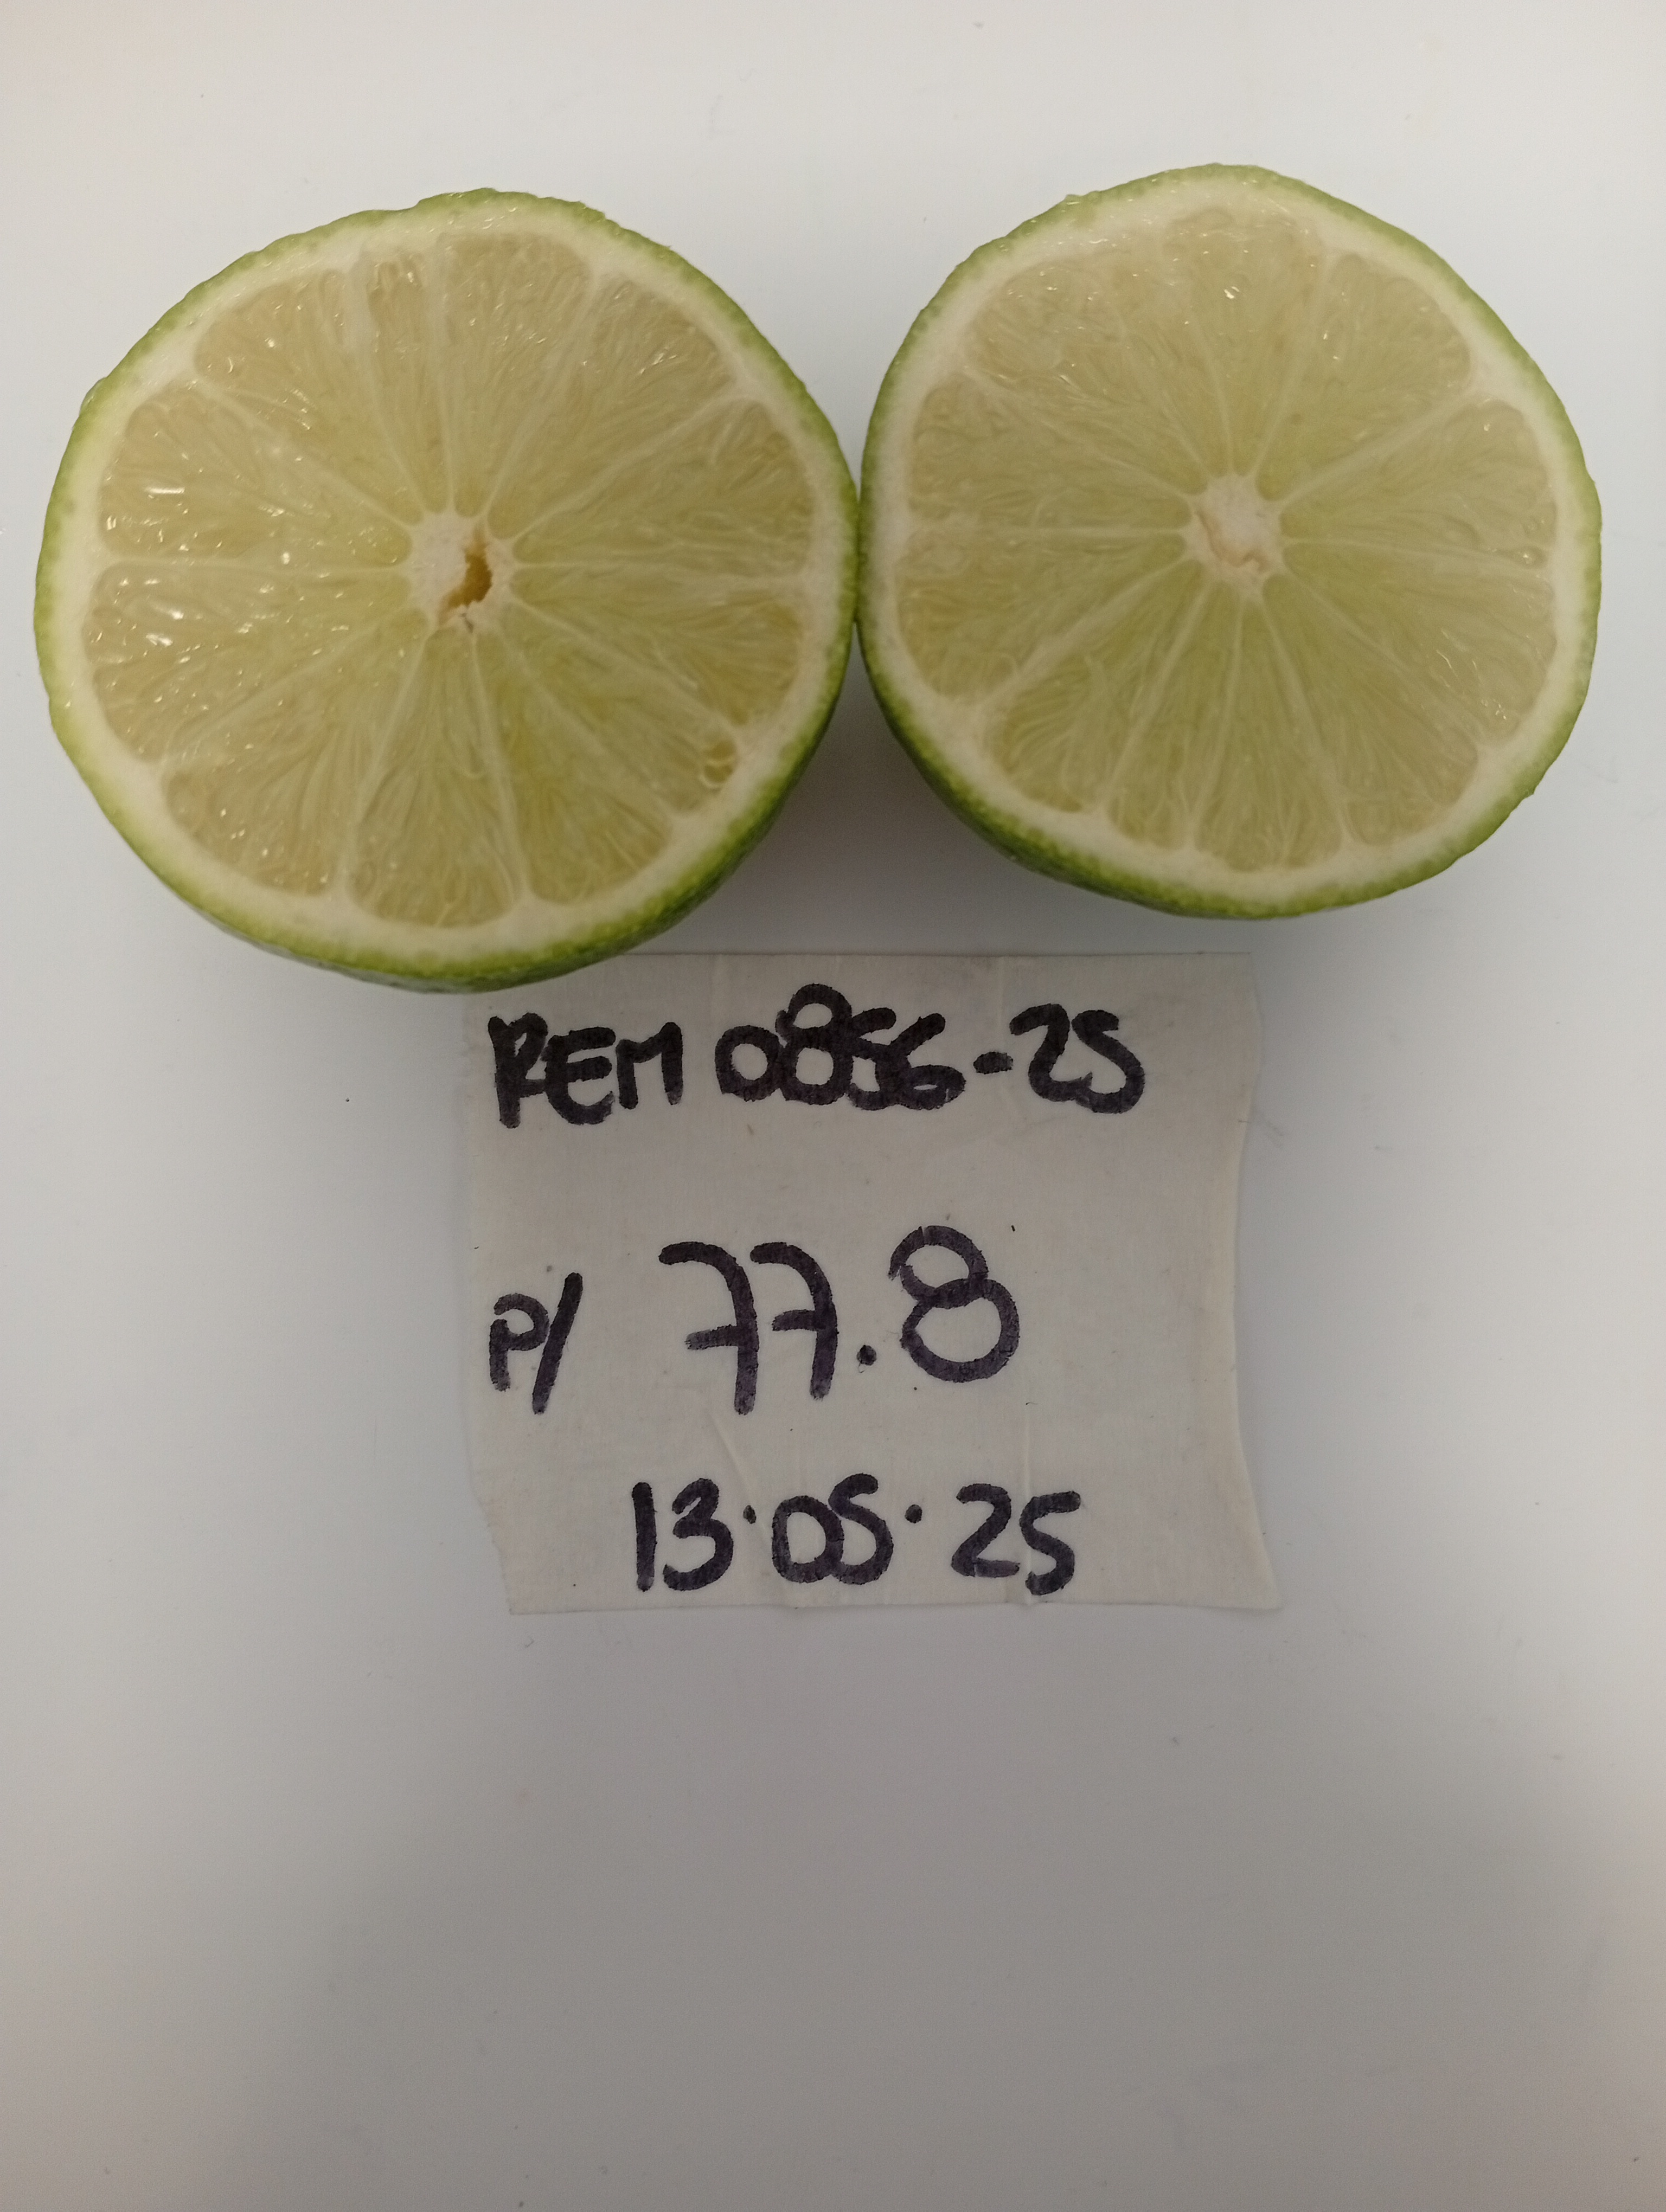 REM 0856-25
P/ 77.8
13·05·25